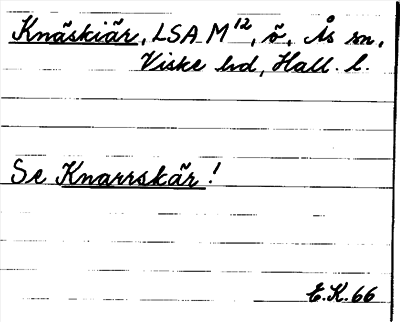 Knäskiär, LSA M¹², ö, Ås sn,
Viske hd, Hall. l.
Se Knarrskär!
E.K. 66